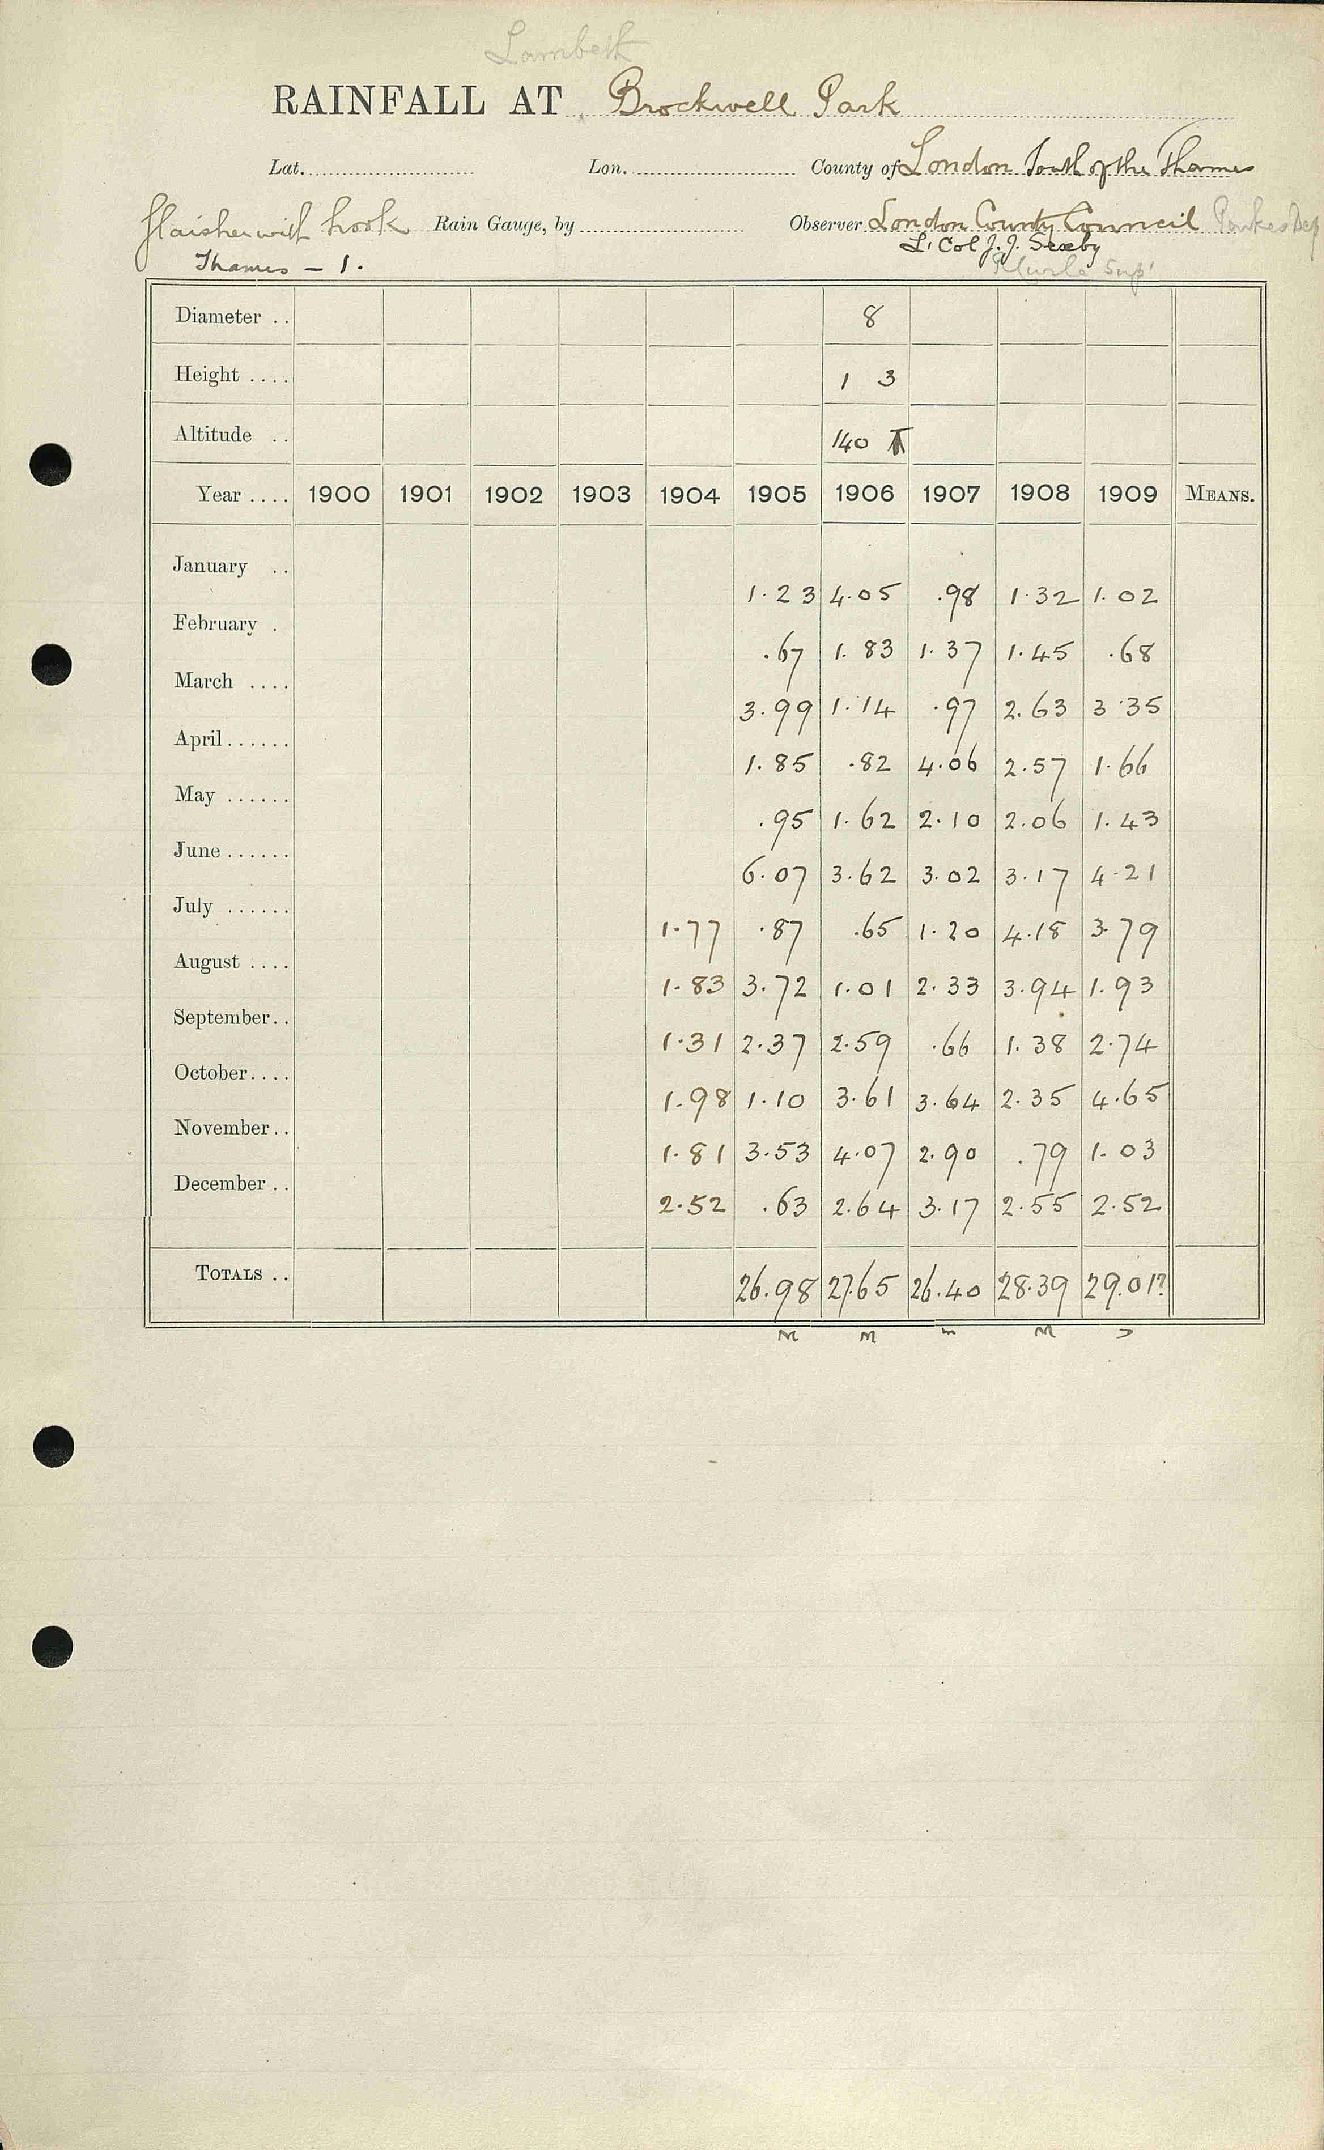 Lambeth
RAINFALL AT Brockwell Park
Lat. Lon. County of London South of the Thames
Glaisher with hook Rain Gauge, by Observer London County Council Parks Dep
Lt Col J. J. Sexby
Thames - 1. Sup
Diameter .. 8
Height .... 1 3
Altitude .. 140 T
Year .... 1900 1901 1902 1903 1904 1905 1906 1907 1908 1909 MEANS.
January .. 1.23 4.05 .98 1.32 1.02
February . .67 1.83 1.37 1.45 .68
March .... 3.99 1.14 .97 2.63 3.35
April...... 1.85 .82 4.06 2.57 1.66
May ...... .95 1.62 2.10 2.06 1.43
June...... 6.07 3.62 3.02 3.17 4.21
July ...... 1.77 .87 .65 1.20 4.18 3.79
August .... 1.83 3.72 1.01 2.33 3.94 1.93
September.. 1.31 2.37 2.59 .66 1.38 2.74
October.... 1.98 1.10 3.61 3.64 2.35 4.65
November.. 1.81 3.53 4.07 2.90 .79 1.03
December .. 2.52 .63 2.64 3.17 2.55 2.52
TOTALS .. 26.98 27.65 26.40 28.39 29.01?
M M M